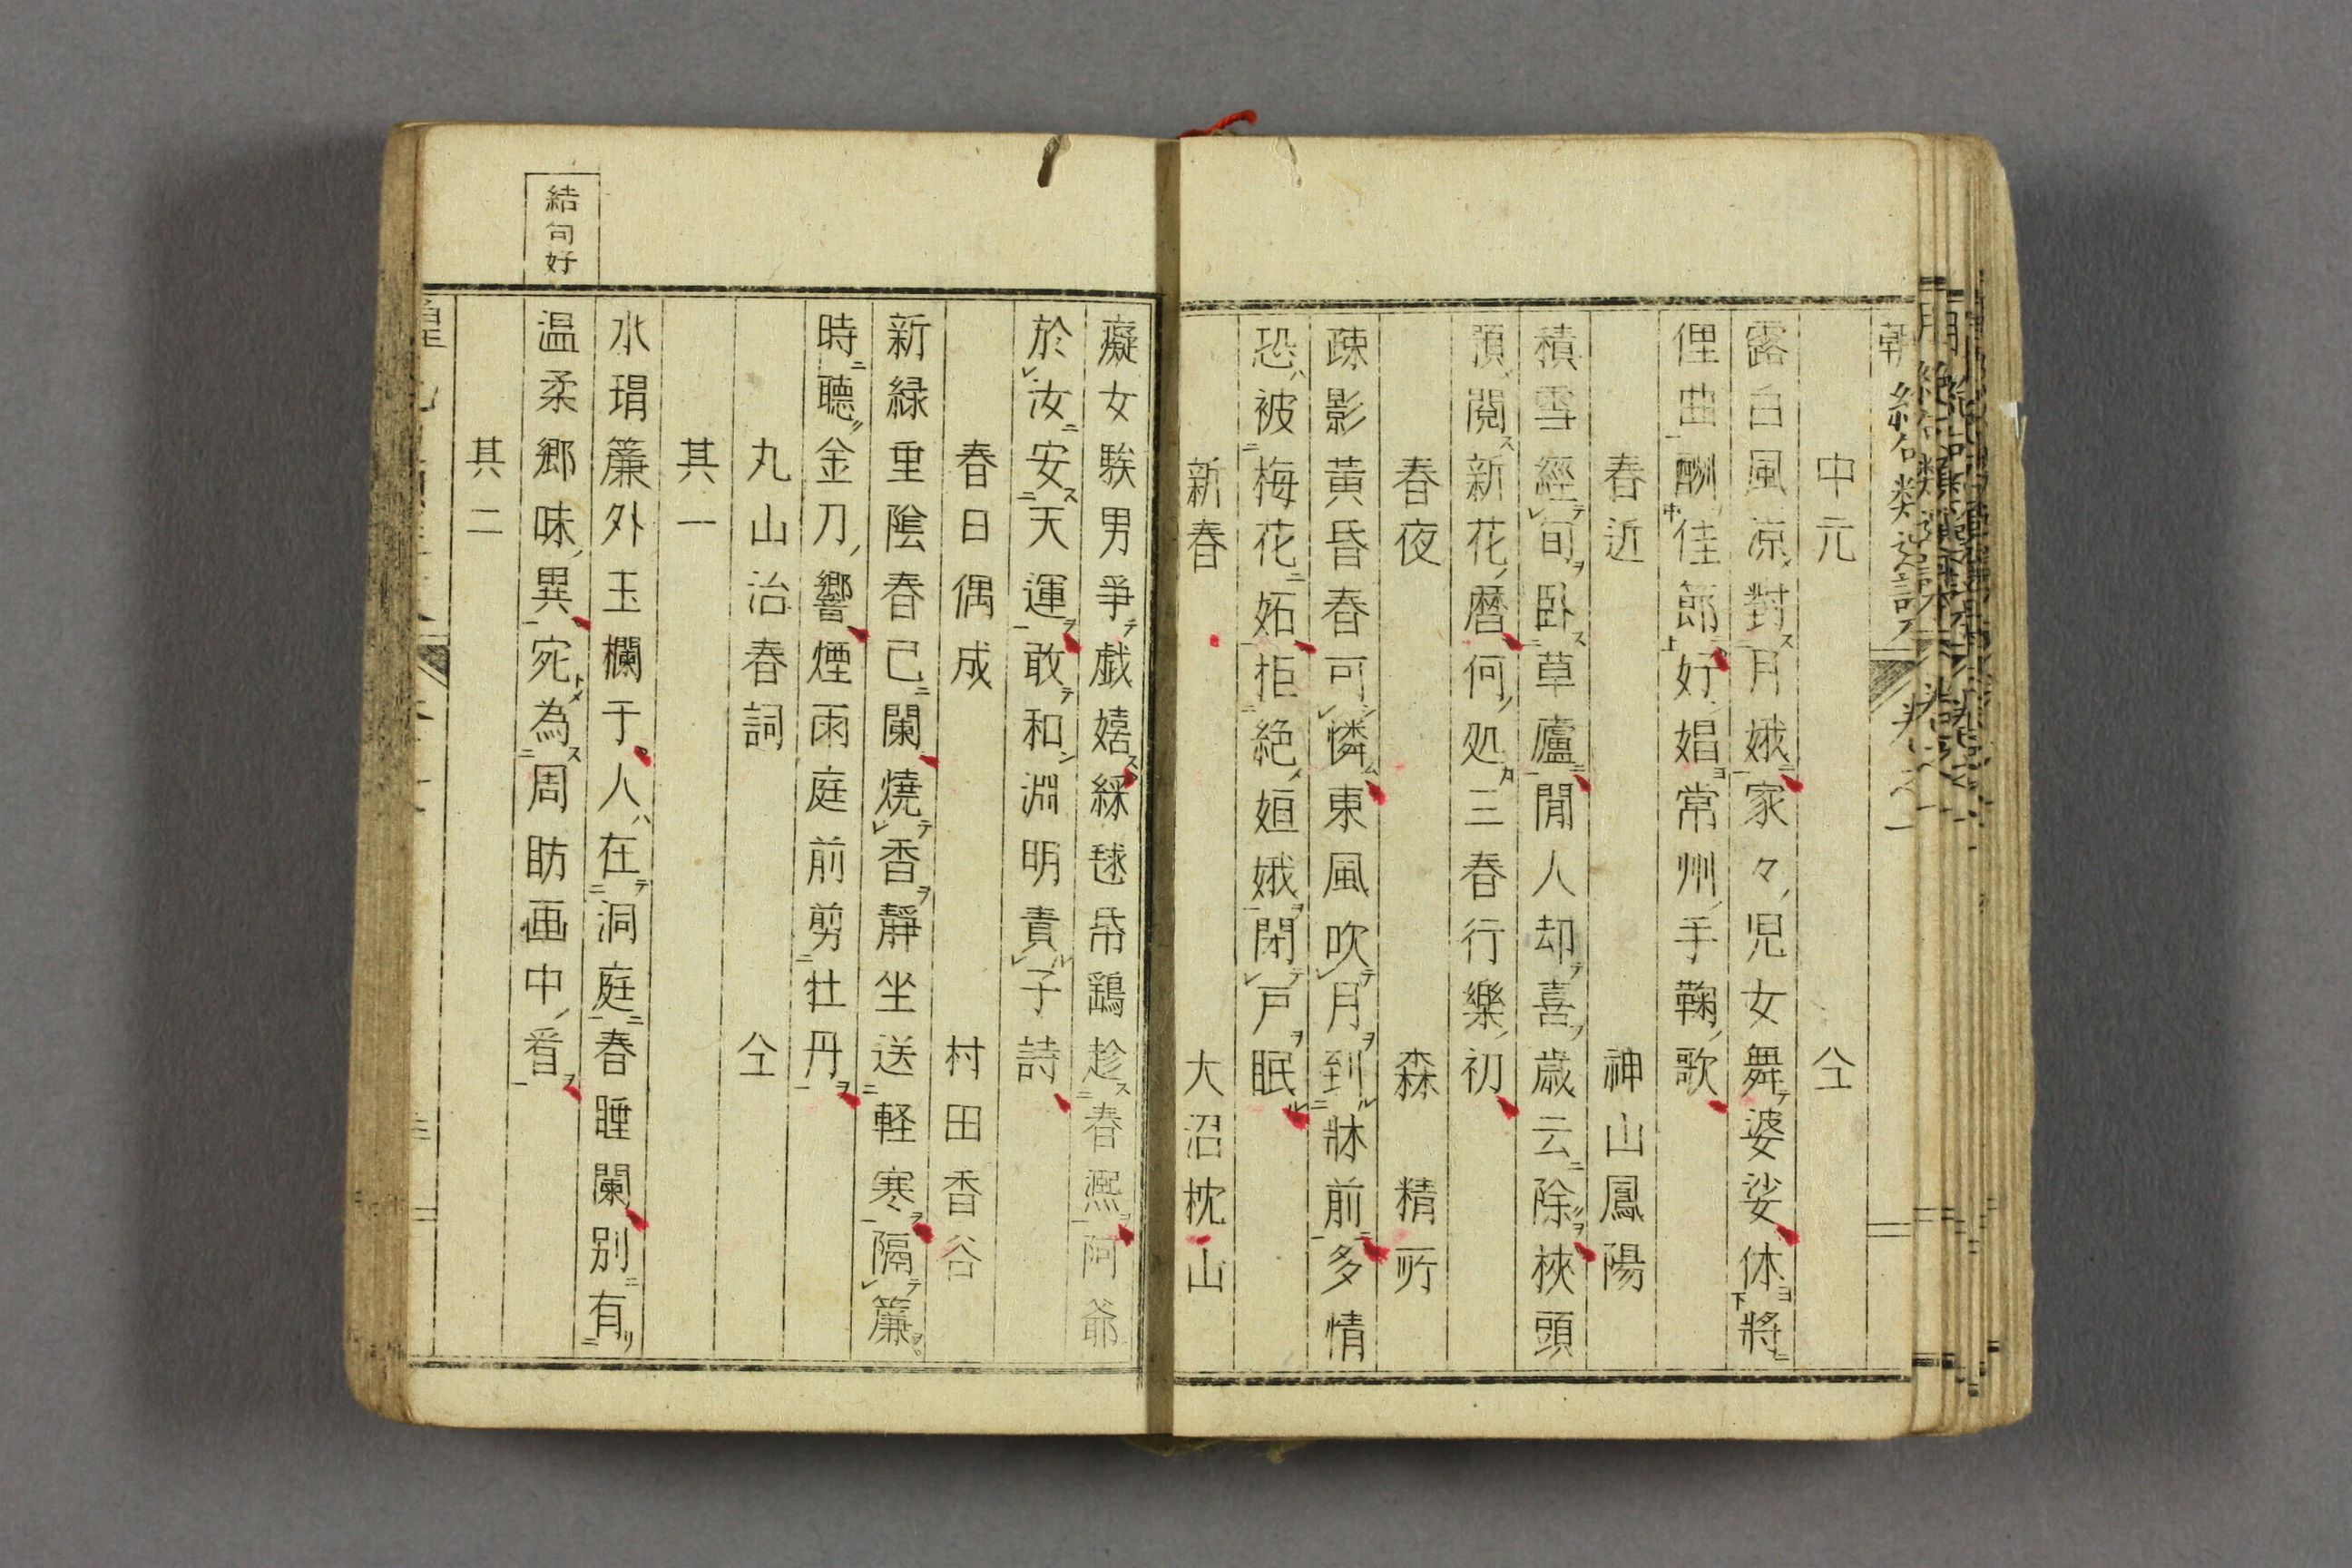 中元　仝
露白風凉對月娥家々児女舞婆娑休將
俚曲酬佳節好娼常州手鞠歌
春近　神山鳳陽
積雪經旬卧草廬閒人却喜歳云除梜頭
預閲新花暦何処三春行樂初
春夜　森精所
疎影黃昏春可憐東風吹月到牀前多情
恐被梅花妬拒絶姮娥閉戸眠
新春　大沼枕山
癡女騃男爭戯嬉綵毬帋鷂趁春熈阿爺
於汝安天運敢和淵明責子詩
春日偶成　村田香谷
新緑重陰春已闌燒香靜坐送軽寒隔簾
時聽金刀響煙雨庭前剪牡丹
丸山治春詞　仝
其一
水瑁簾外玉欄干人在洞庭春睡闌別有
結句好
温柔郷味異宛為周昉画中看
其二